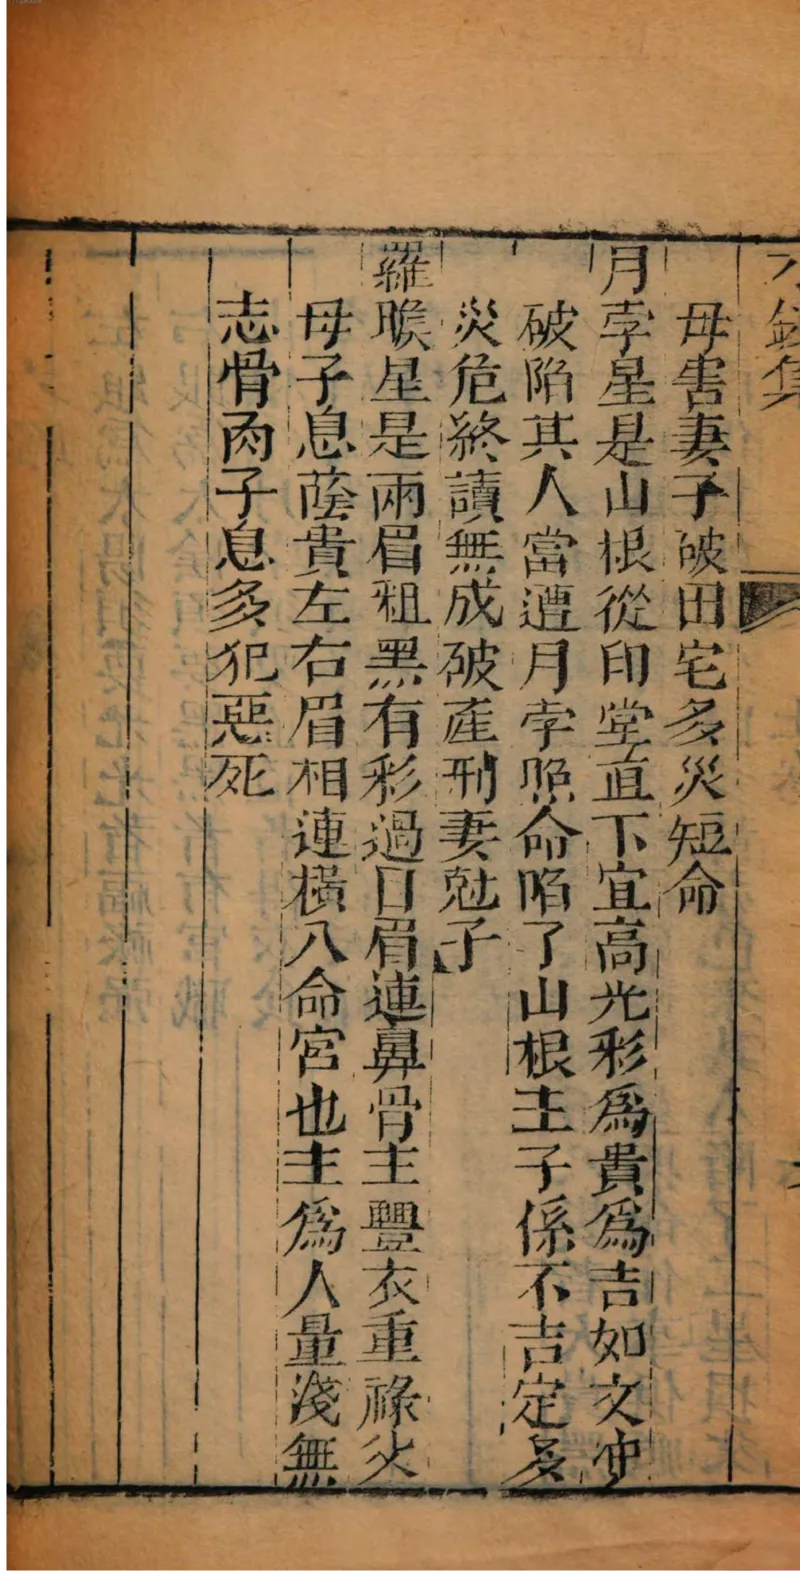 集
母害妻子破田宅多災短命
月孛星是山根從印堂直下宜高光彩爲貴爲吉如文沖
破陷其人當遭月孛照命陷了山根主子係不吉定多
災危終讀無成破產刑妻尅子
羅睺星是兩眉粗黑有彩過目眉連鼻骨主豐衣重祿父
母子息蔭貴左右眉相連橫八命宮也主爲人量淺無
志骨肉子息多犯惡死